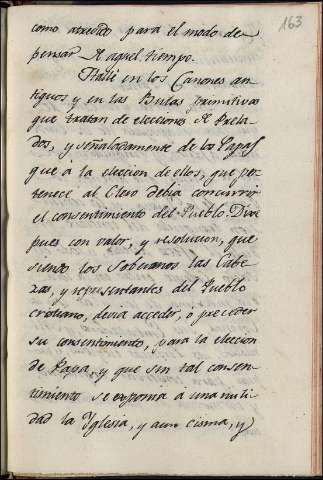 163
como atrevido para el modo de
pensar de aquel tiempo.
Hallé en los Canones an-
tiguos y en las Bulas primitivas
que tratan de elecciones de Prela-
dos, y señaladamente de los Papas
que á la eleccion de ellos, que per-
tenece al Clero debia concurrir
el consentimiento del Pueblo. Dixe
pues con valor, y resolucion, que
siendo los Soberanos las Cabe-
zas, y representantes del Pueblo
cristiano, devia acceder, ó preceder
su consentimiento, para la eleccion
de Papa, y que sin tal consen-
timiento se exponia á una nuli-
dad la Yglesia, y aun cisma, y